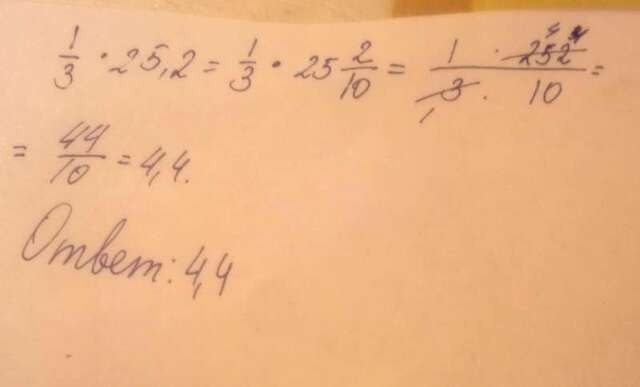 1/3 · 25,2 = 1/3 · 25 2/10 = 1 · 252 / 3 · 10 =
= 44/10 = 4,4.
Ответ: 4,4